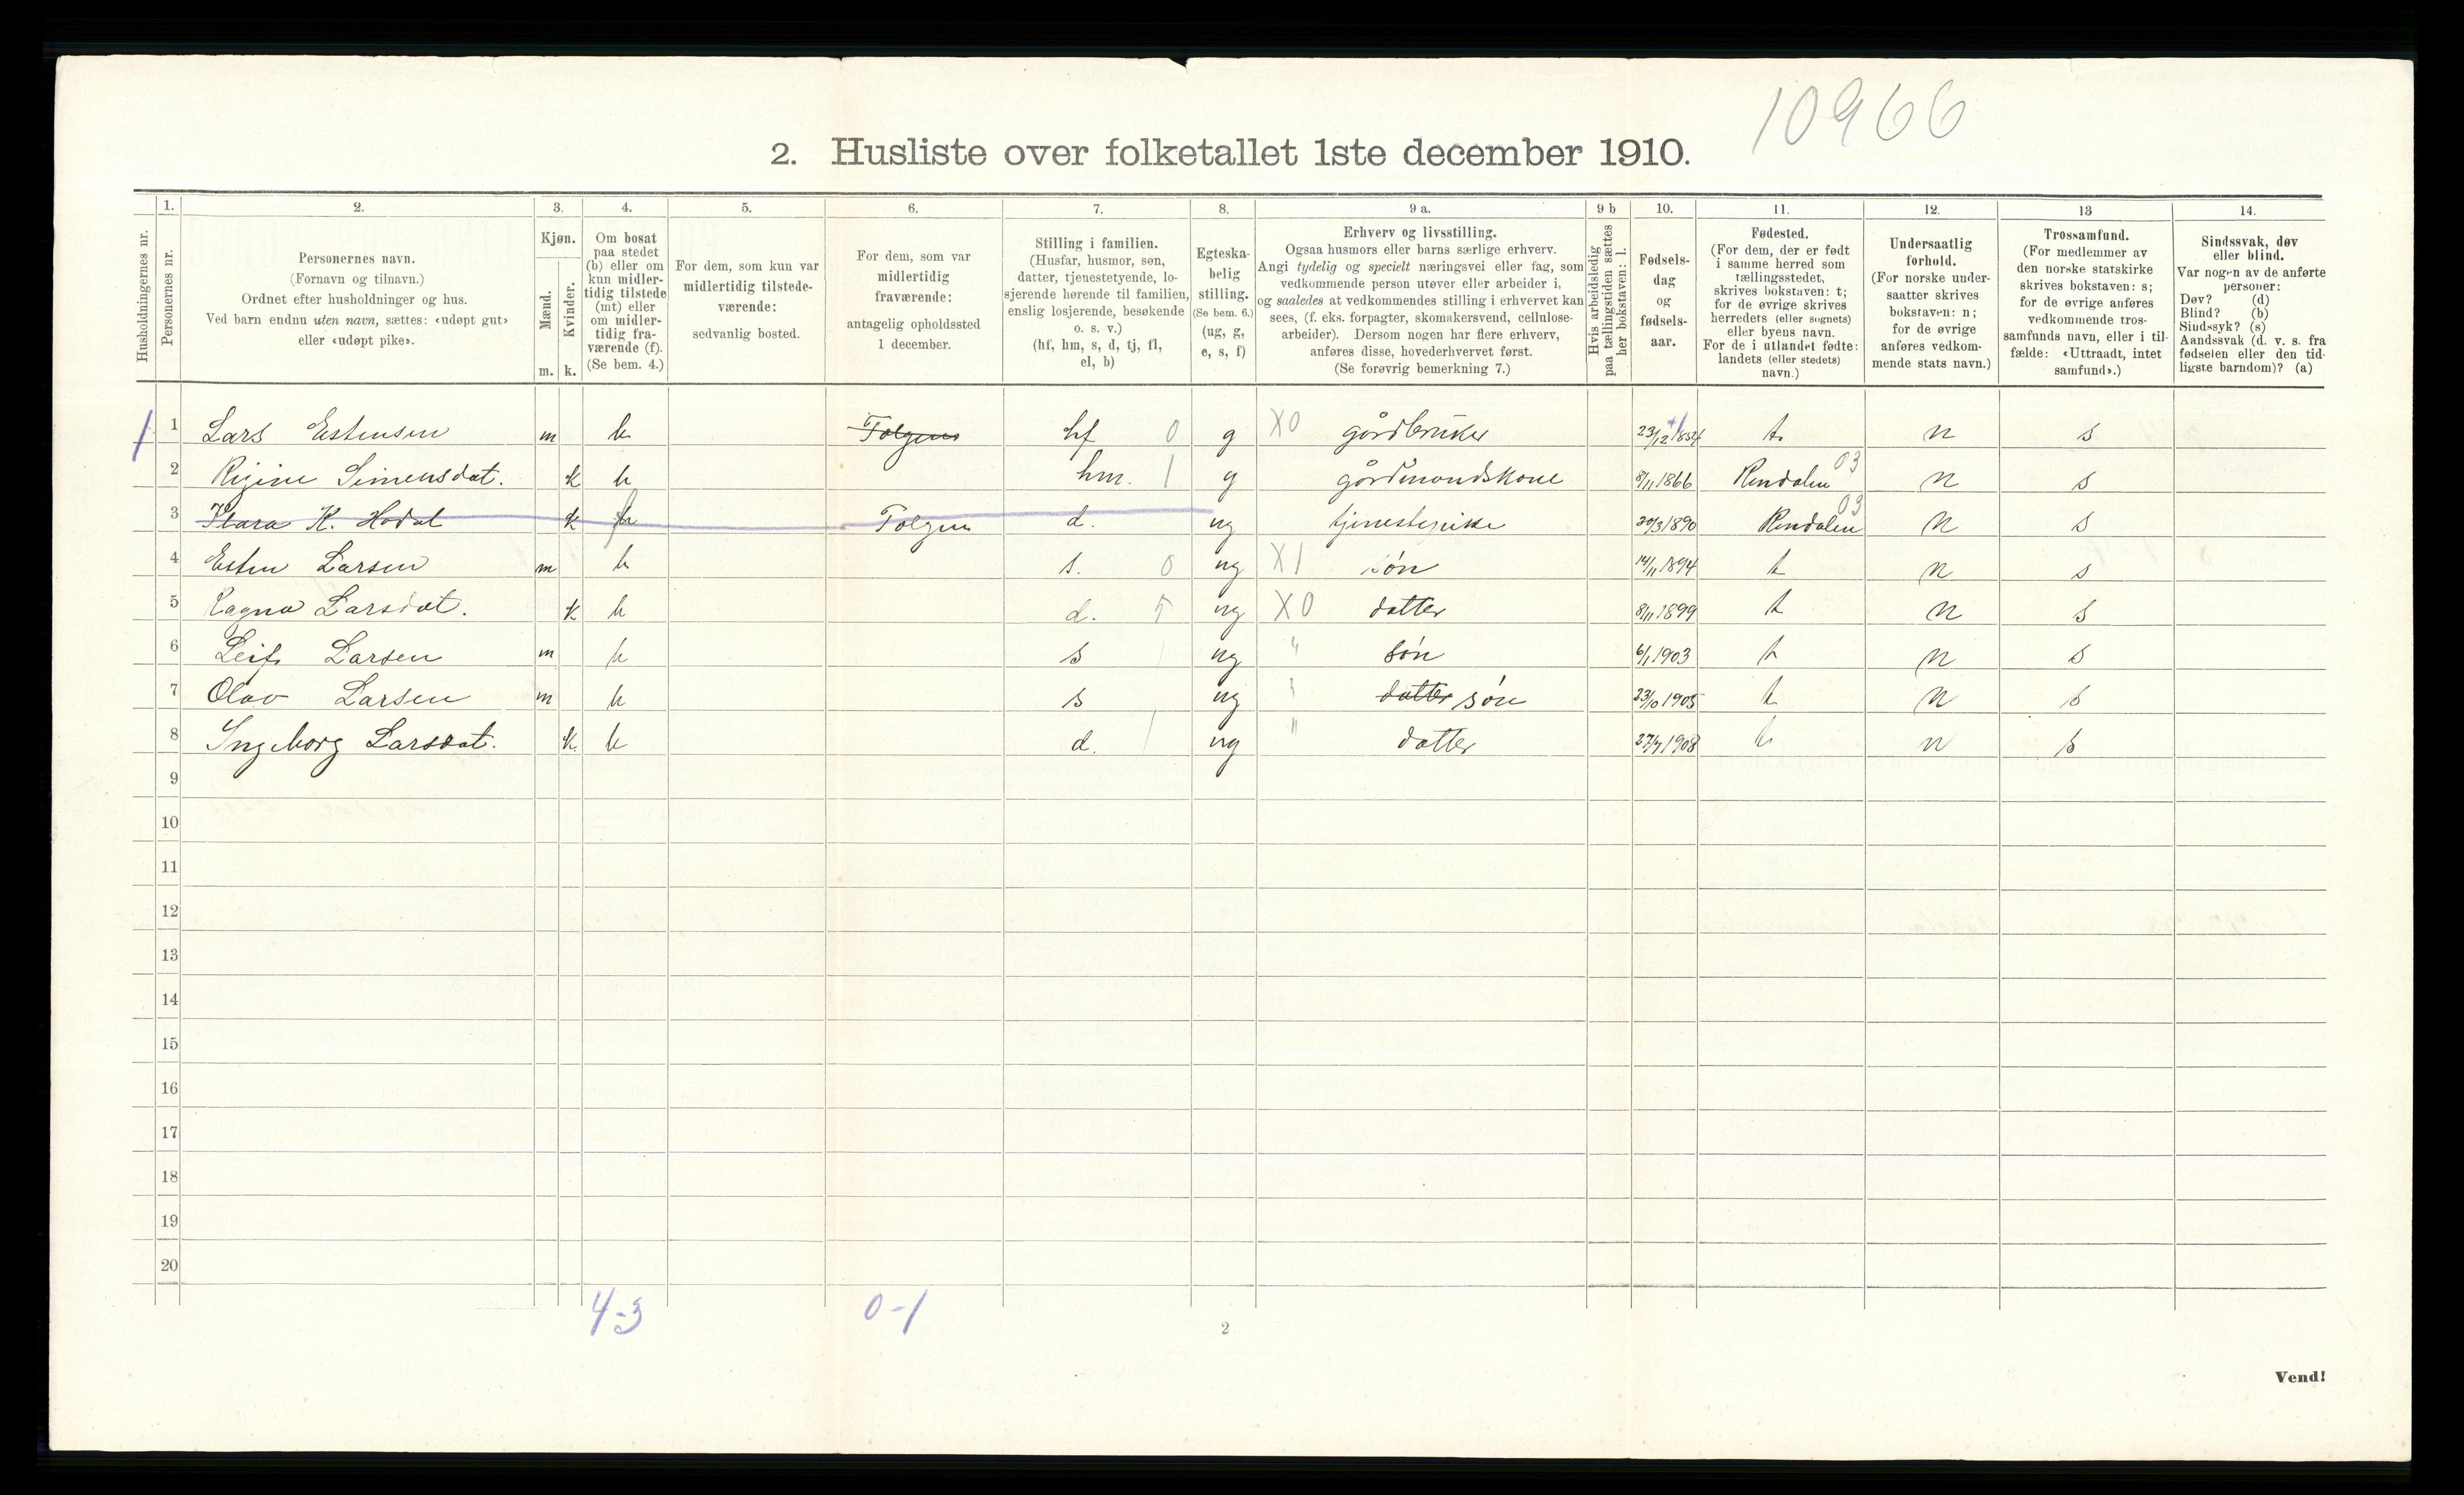 10966
2. Husliste over folketallet 1ste december 1910.
Husholdningernes nr.
1.
Personernes nr.
2.
Personernes navn.
(Fornavn og tilnavn.)
Ordnet efter husholdninger og hus.
Ved barn endnu uten navn, sættes: «udøpt gut»
eller «udøpt pike».
3.
Kjøn.
Mænd.
Kvinder.
m. k.
4.
Om bosat
paa stedet
(b) eller om
kun midler-
tidig tilstede
(mt) eller
om midler-
tidig fra-
værende (f).
(Se bem. 4.)
5.
For dem, som kun var
midlertidig tilstede-
værende:
sedvanlig bosted.
6.
For dem, som var
midlertidig
fraværende:
antagelig opholdssted
1 december.
7.
Stilling i familien.
(Husfar, husmor, søn,
datter, tjenestetyende, lo-
sjerende hørende til familien,
enslig losjerende, besøkende
o. s. v.)
(hf, hm, s, d, tj, fl,
el, b)
8.
Egteska-
belig
stilling.
(Se bem. 6.)
(ug, g,
e, s, f)
9 a.
Erhverv og livsstilling.
Ogsaa husmors eller barns særlige erhverv.
Angi tydelig og specielt næringsvei eller fag, som
vedkommende person utøver eller arbeider i,
og saaledes at vedkommendes stilling i erhvervet kan
sees, (f. eks. forpagter, skomakersvend, cellulose-
arbeider). Dersom nogen har flere erhverv,
anføres disse, hovederhvervet først.
(Se forøvrig bemerkning 7.)
9 b
Hvis arbeidsledig
paa tællingstiden sættes
her bokstaven: l.
10.
Fødsels-
dag
og
fødsels-
aar.
11.
Fødested.
(For dem, der er født
i samme herred som
tællingsstedet,
skrives bokstaven: t;
for de øvrige skrives
herredets (eller sognets)
eller byens navn.
For de i utlandet fødte:
landets (eller stedets)
navn.)
12.
Undersaatlig
forhold.
(For norske under-
saatter skrives
bokstaven: n;
for de øvrige
anføres vedkom-
mende stats navn.)
13
Trossamfund.
(For medlemmer av
den norske statskirke
skrives bokstaven: s;
for de øvrige anføres
vedkommende tros-
samfunds navn, eller i til-
fælde: «Uttraadt, intet
samfund».)
14.
Sindssvak, døv
eller blind.
Var nogen av de anførte
personer:
Døv? (d)
Blind? (b)
Sindssyk? (s)
Aandssvak (d. v. s. fra
fødselen eller den tid-
ligste barndom)? (a)
1 1 Lars Estensen m b Tolgen hf 0 g X0 gårdbruker 23/12 1854 t n s
2 Rigine Simensdat. k b hm. 1 g gårdmandskone 8/11 1866 Rendalen 03 n s
3 Klara K. Hodal k f Tolgen d. ug tjenestepike 20/3 1890 Rendalen 03 n s
4 Esten Larsen m b s. 0 ug X1 søn 14/11 1894 t n s
5 Ragna Larsdat. k b d. ug X0 datter 8/11 1899 t n s
6 Leif Larsen m b s ug " søn 6/1 1903 t n s
7 Olav Larsen m b s ug " datter søn 23/10 1905 t n s
8 Ingeborg Larsdat. k. b d. ug " datter 27/7 1908 t n s
9
10
11
12
13
14
15
16
17
18
19
20
4-3 0-1
2
Vend!